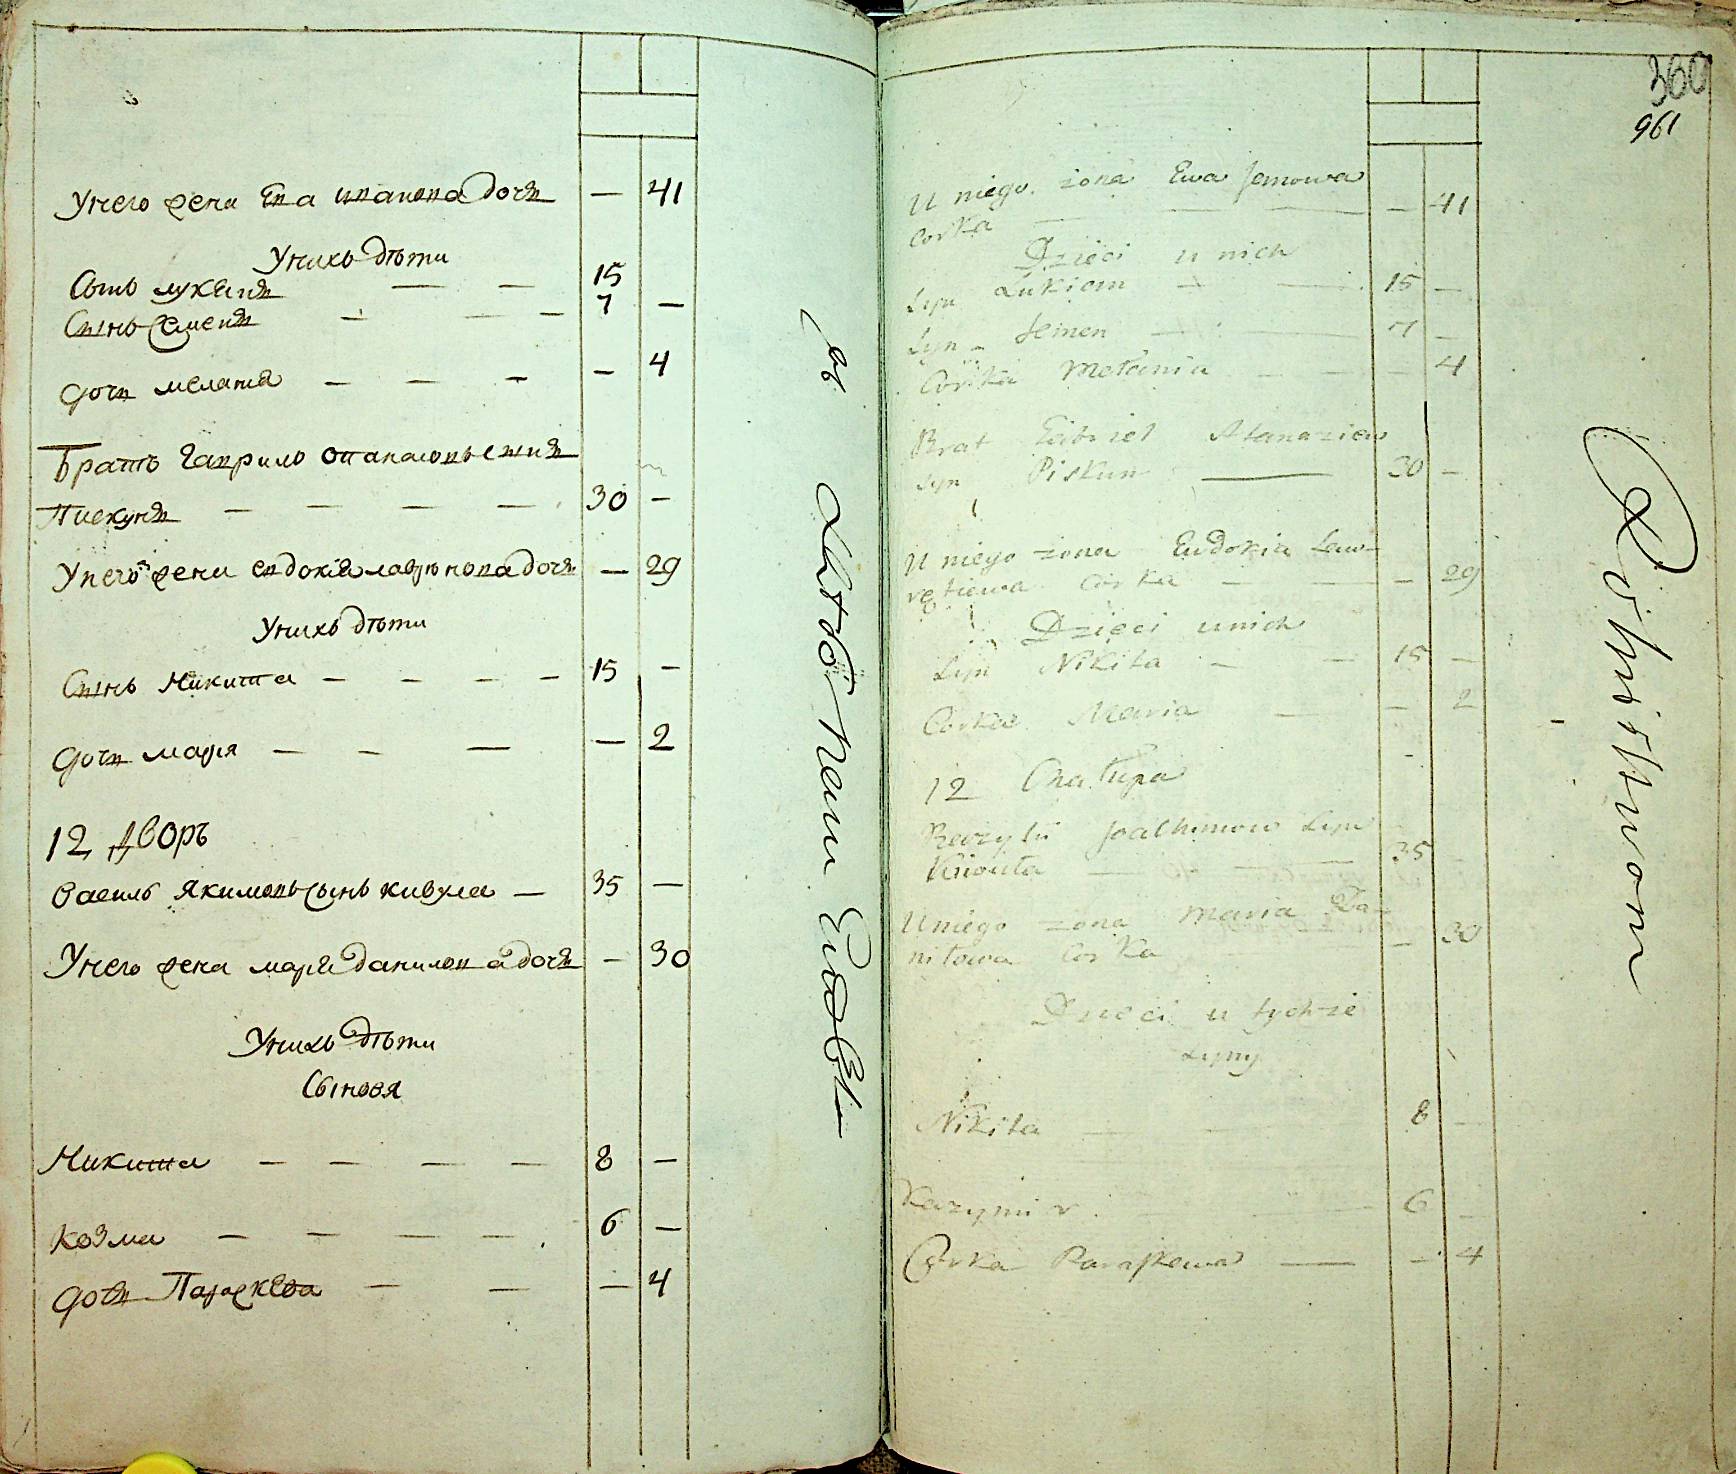 Унего жена Ева иванова дочъ — 41
Унихъ дѣти
Сынъ лукянъ — — 15
Сынъ Семенъ — — — 7 —
дочъ мелания — — — — 4
Братъ Гаврило
Пискунъ — — — — 30 —
Унего жена евдокия дочъ — 29
Унихъ дѣти
Сынъ Никита — — — — 15 —
дочъ маря — — — — 2
12 дворъ
Василь Якимовъ сынъ кивула — 35 —
Унего жена маря данилова дочъ — 30
Унихъ дѣти
Сыновя
Никита — — — — 8 —
козма — — — — 6 —
дочъ Параскева — — — 4
300
961
U niego żona Ewa Janowa
Corka — — — 41
Dzieci u nich
Syn Lukian — — 15 —
Syn Semen — — 7 —
Corka Melania — — — 4
Brat Gabriel Atanaziew
Syn Piskun — 30 —
U niego żona Eudokia Law-
Corka — — — 29
Dzieci u nich
Syn Nikita — — 15 —
Corka Maria — — 2
12 Chałupa
Bazyli Joachimow Syn
35
U niego żona Maria Da-
niłowa Corka — 30
Dzieci u tychże
Syny
Nikita — — 8 —
Kazymir — — 6 —
Corka Paraskewa — — 4